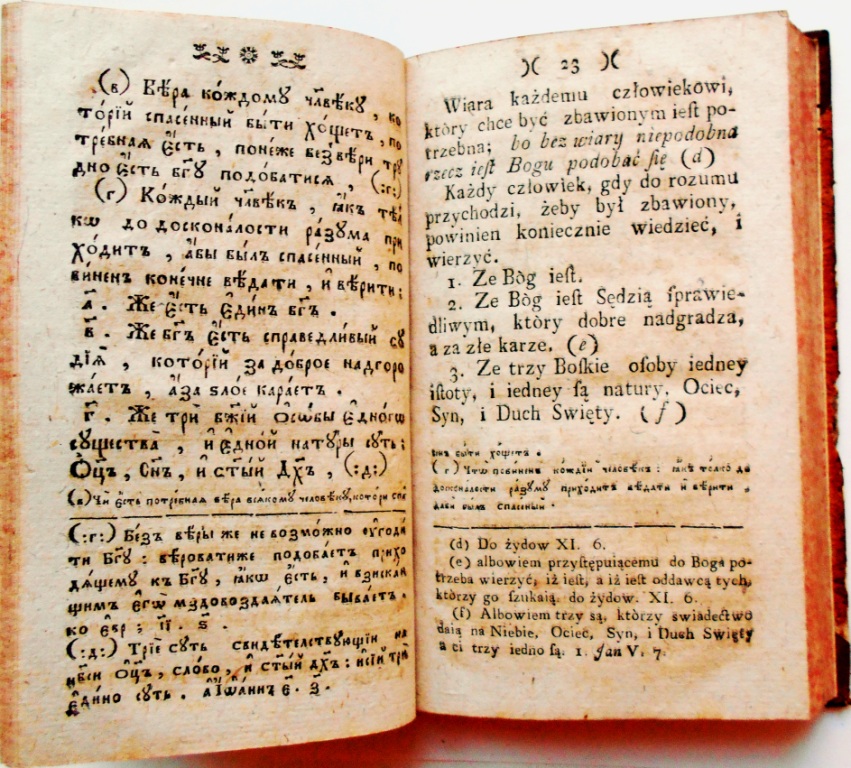 (в) Вѣ́ра ко́ждомꙋ чл҃вѣкꙋ, ко
то́рїй спасе́нный бы́ти хо́щетъ, по
тре́бная є҆сть, поне́же безвѣ́ри тꙋ
дно є҆сть бг҃ꙋ подо́батисѧ, (:г:)
(г) Ко́ждый чл҃вѣкъ, ꙗ҆къ тѣ́л
кѡ до доскона́лости ра́зꙋма при
хо́дитъ, а҆бы бы́лъ спасе́нный, по
ви́ненъ коне́чне вѣ́дати, и҆ вѣ́рити:
а҃. Же є҆сть є҆ди́нъ бг҃ъ.
в҃. Же бг҃ъ є҆сть справедли́вый сꙋ
дїѧ̀, кото́рїй за до́брое надгоро
жа́етъ, а҆за ѕло́е кара́етъ.
г҃. Же трѝ бж҃їй Осо́бы є҆дно́гѡ
сꙋщества̀, и҆ є҆дно́й натꙋ́ры сꙋ́ть:
Оц҃ъ, Сн҃ъ, и҆ ст҃ый Дх҃ъ, (:д:)
(в) Чи є҆сть потре́бная вѣ́ра всѧ́комꙋ человѣ́кꙋ, котори спа
(:г:) Без̾ вѣ́ры же не возмо́жно ᲂу҆годи
ти Бг҃ꙋ: вѣ́роватиже подоба́етъ прихо
дѧ́щемꙋ къ Бг҃ꙋ, ꙗ҆кѡ є҆сть, и҆ взиска́ю
щимъ є҆гѡ̀ мздовоздаѧ́тель быва́етъ.
ко є҆вр: а҃і. ѕ҃.
(:д:) Трїе́ сꙋть свидѣ́телствꙋющїи на
нб҃си Оц҃ъ, сло́во, и҆ ст҃ый дх҃ъ: и҆сїи́ трѝ
є҆ди́но сꙋть. а҃ І҆ѡа́нн є҃. з҃.
)( 23 )(
Wiara każdemu człowiekowi,
który chce być zbawionym ieſt po-
trzebna; bo bez wiary niepodobna
rzecz ieſt Bogu podobać ſię (d)
Każdy człowiek, gdy do rozumu
przychodzi, żeby był zbawiony,
powinien koniecznie wiedzieć, i
wierzyć.
1. Ze Bòg ieſt.
2. Ze Bòg ieſt Sędzią ſprawie-
dliwym, który dobre nadgradza,
a za złe karze. (e)
3. Ze trzy Boſkie oſoby iedney
iſtoty, i iedney ſą natury. Ociec,
Syn, i Duch Swięty. (f)
бы́ти хо́щетъ.
(г) Что̀ пови́ненъ ко́ждїй человѣ́къ: ꙗ҆къ то́лко до
доскона́лости ра́зꙋмꙋ прихо́дитъ вѣ́дати и҆ вѣ́рити,
даби былъ спасе́нный.
(d) Do żydow XI. 6.
(e) albowiem przyſtępuiącemu do Boga po-
trzeba wierzyć, iż ieſt, a iż ieſt oddawcą tych,
którzy go ſzukaią. do żydow. XI. 6.
(f) Albowiem trzy ſą, którzy świadectwo
daią na Niebie, Ociec, Syn, i Duch Swięty
a ci trzy iedno ſą. 1. Jan V. 7.